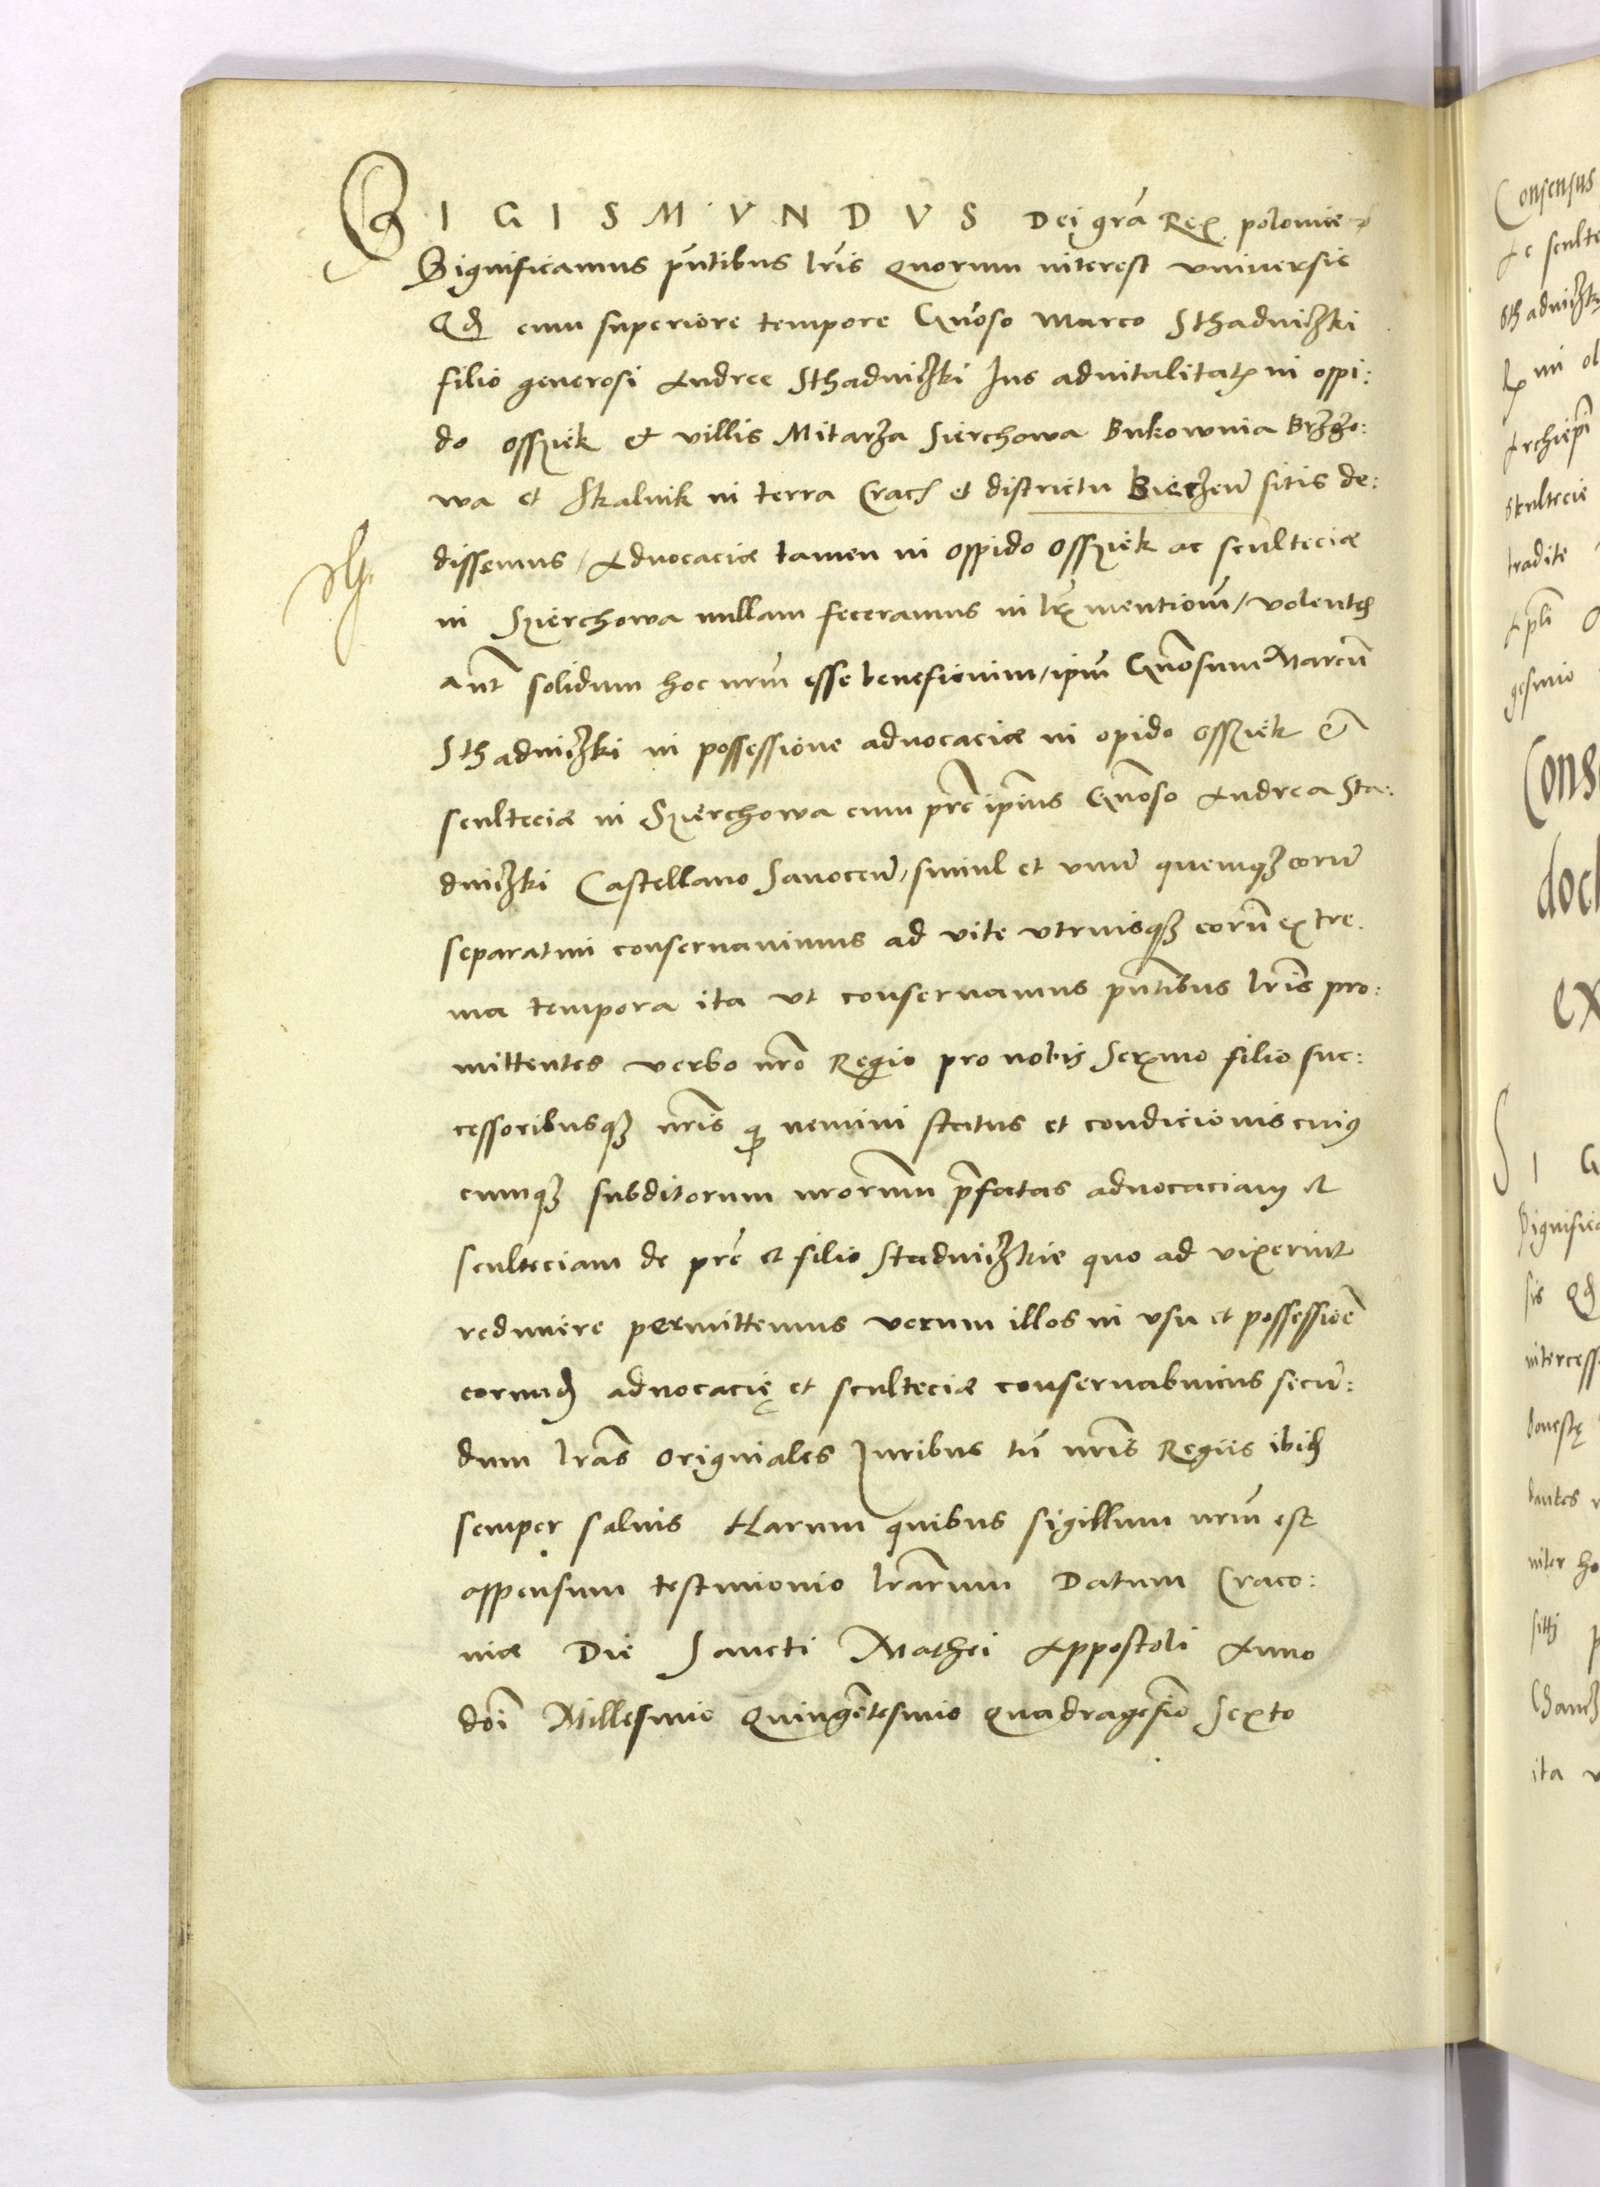 SIGISMVNDVS Dei grā Rex polonie
Significamus pn̄tibus lr̄is quorum interest vniversis
Qd cum superiore tempore Gn̄oso Marco Sthadniczki
filio generosi Andree Sthadniczki Ius aduitalitatis in oppi:
do Ossziek et villis Mitarza Sierchowa Bukownia Brzezo:
wa et Skalnik in terra Crac et districtu Bieczen̄ sitis de:
dissemus / Aduocaciæ tamen in oppido Ossziek ac sculteciæ
in Szierchowa nullam feceramus in lr̄is mentionē / volentes
aut̄ solidum hoc nrūm esse beneficium / ipm̄ Gn̄osum Marcū
Sthadniczki in possessione aduocaciæ in opido Ossziek et
sculteciæ in Szierchowa cum prē ipsius Gn̄oso Andrea Sta:
dniczki Castellano Sanocen̄ / simul et vnū quemqz eorū
separatim conseruauimus ad vite vtriusqz eorū extre
ma tempora ita vt conseruamus pn̄tibus lr̄is pro:
mittentes verbo nrō Regio pro nobis Serēmo filio suc:
cessoribusqz nrīs qz nemini status et condicionis cuius
cumqz subditorum nrorum p̄fatas aduocaciam et
scultetiam de prē et filio Stadniczkie quo ad vixerint
redimere permittemus verum illos in vsu et possessiōe
eorund aduocacię et scultecię conseruabimus secū:
dum lrās originales Iuribus tn̄ nrīs Regiis ibid
semper saluis Harum quibus sigillum nrūm est
appensum testimonio lrārum Datum Craco:
niæ Die Sancti Mathei Appostoli Anno
doī Millesimo Quingētesimo quadragesīo Sexto